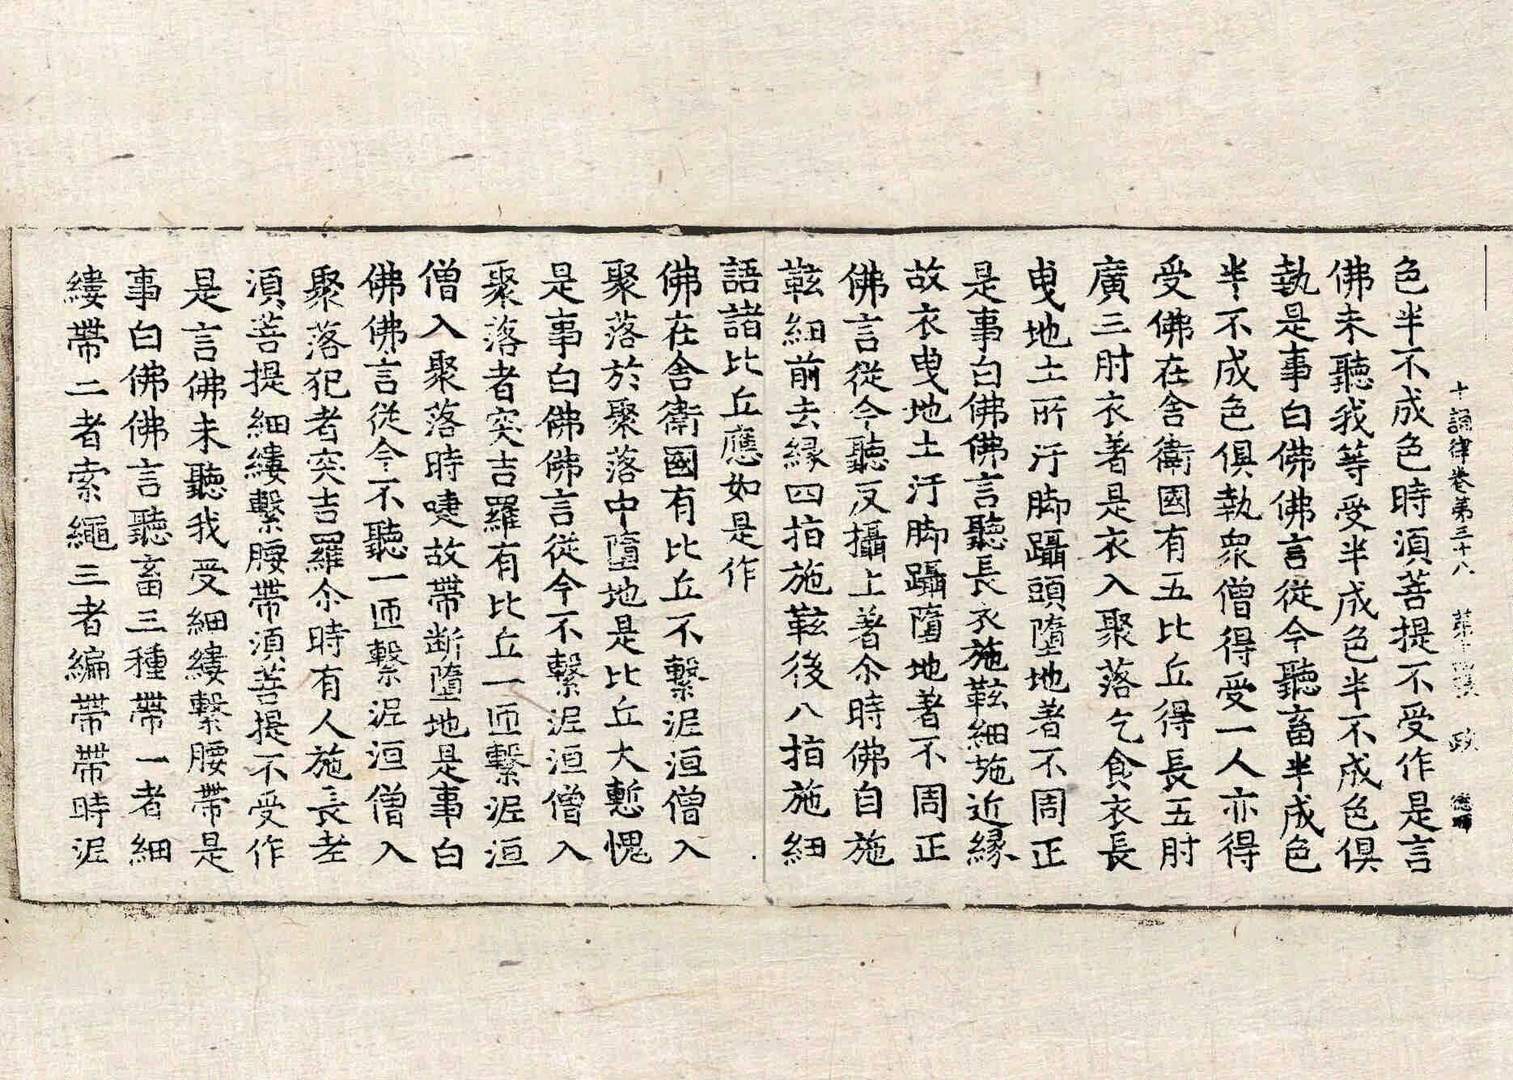 十誦律卷第三十八 第十四張 政
色半不成色時湏菩提不受作是言
佛未聽我等受半成色半不成色俱
執是事白佛佛言從今聽畜半成色
半不成色俱執衆僧得受一人亦得
受佛在舍衛國有五比丘得長五肘
廣三肘衣著是衣入聚落乞食衣長
曳地土所汙脚躡頭墮地著不周正
是事白佛佛言聽長衣施䩙細施近緣
故衣曳地土汙脚躡墮地著不周正
佛言從今聽反攝上著尒時佛自施
䩙細前去緣四指施䩙後八指施細
語諸比丘應如是作
佛在舍衛國有比丘不繫泥洹僧入
聚落於聚落中墮地是比丘大慙愧
是事白佛佛言從今不繫泥洹僧入
聚落者突吉羅有比丘一匝繫泥洹
僧入聚落時嚏故帶断墮地是事白
佛佛言從今不聽一匝繫泥洹僧入
聚落犯者突吉羅尒時有人施長老
湏菩提細縷繫腰帶湏菩提不受作
是言佛未聽我受細縷繫腰帶是
事白佛佛言聽畜三種帶一者細
縷帶二者索繩三者編帶帶時泥